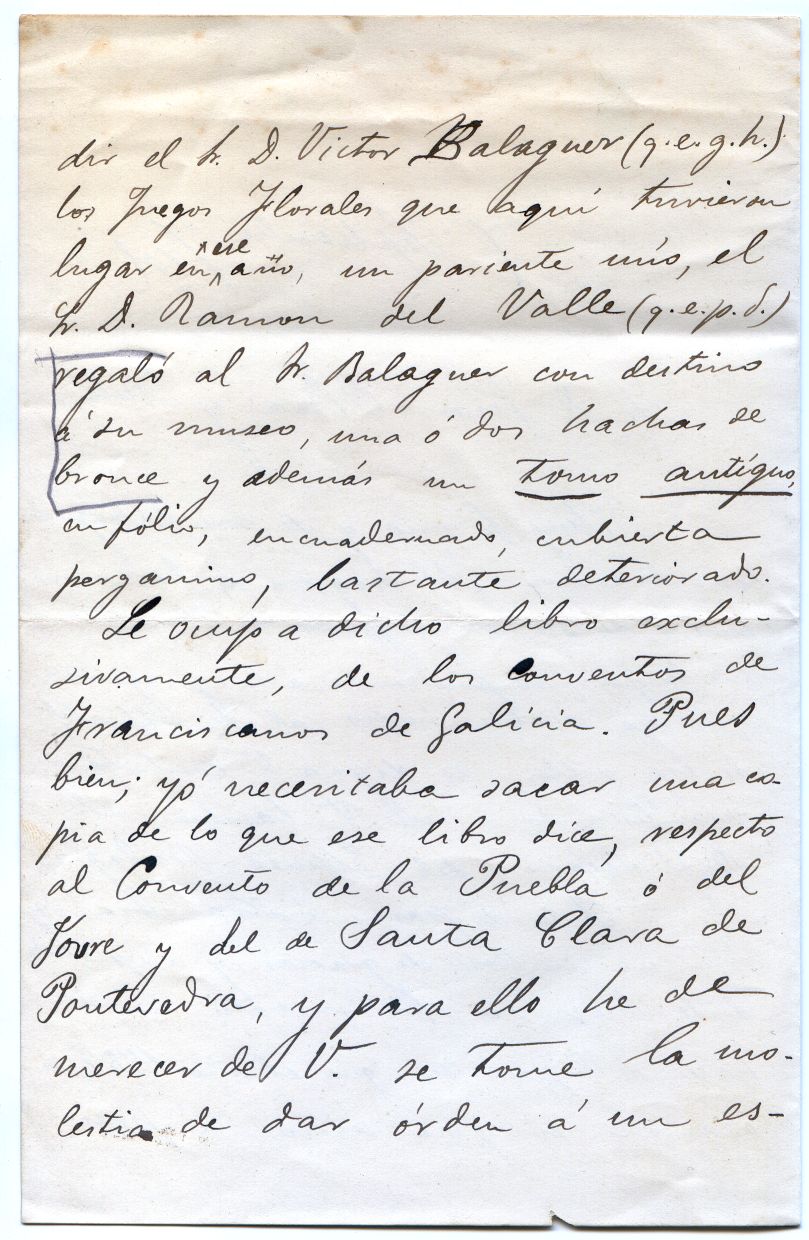 dir el Sr. D. Victor Balaguer (q.e.g.h.)
los Juegos Florales que aquí tuvieron
lugar en ese año, un pariente mio, el
Sr. D. Ramon del Valle (q.e.p.d.)
regaló al Sr. Balaguer con destino
á su museo, una ó dos hachas de
bronce y además un tomo antíguo,
en fólio, encuadernado, cubierta
pergamino, bastante deteriorado.
Se ocupa dicho libro exclu-
sivamente, de los conventos de
Franciscanos de Galicia. Pues
bien; yó necesitaba sacar una co-
pia de lo que ese libro dice, respecto
al Convento de la Puebla ó del
y del de Santa Clara de
Pontevedra, y para ello he de
merecer de V. se tome la mo-
lestia de dar órden á un es-